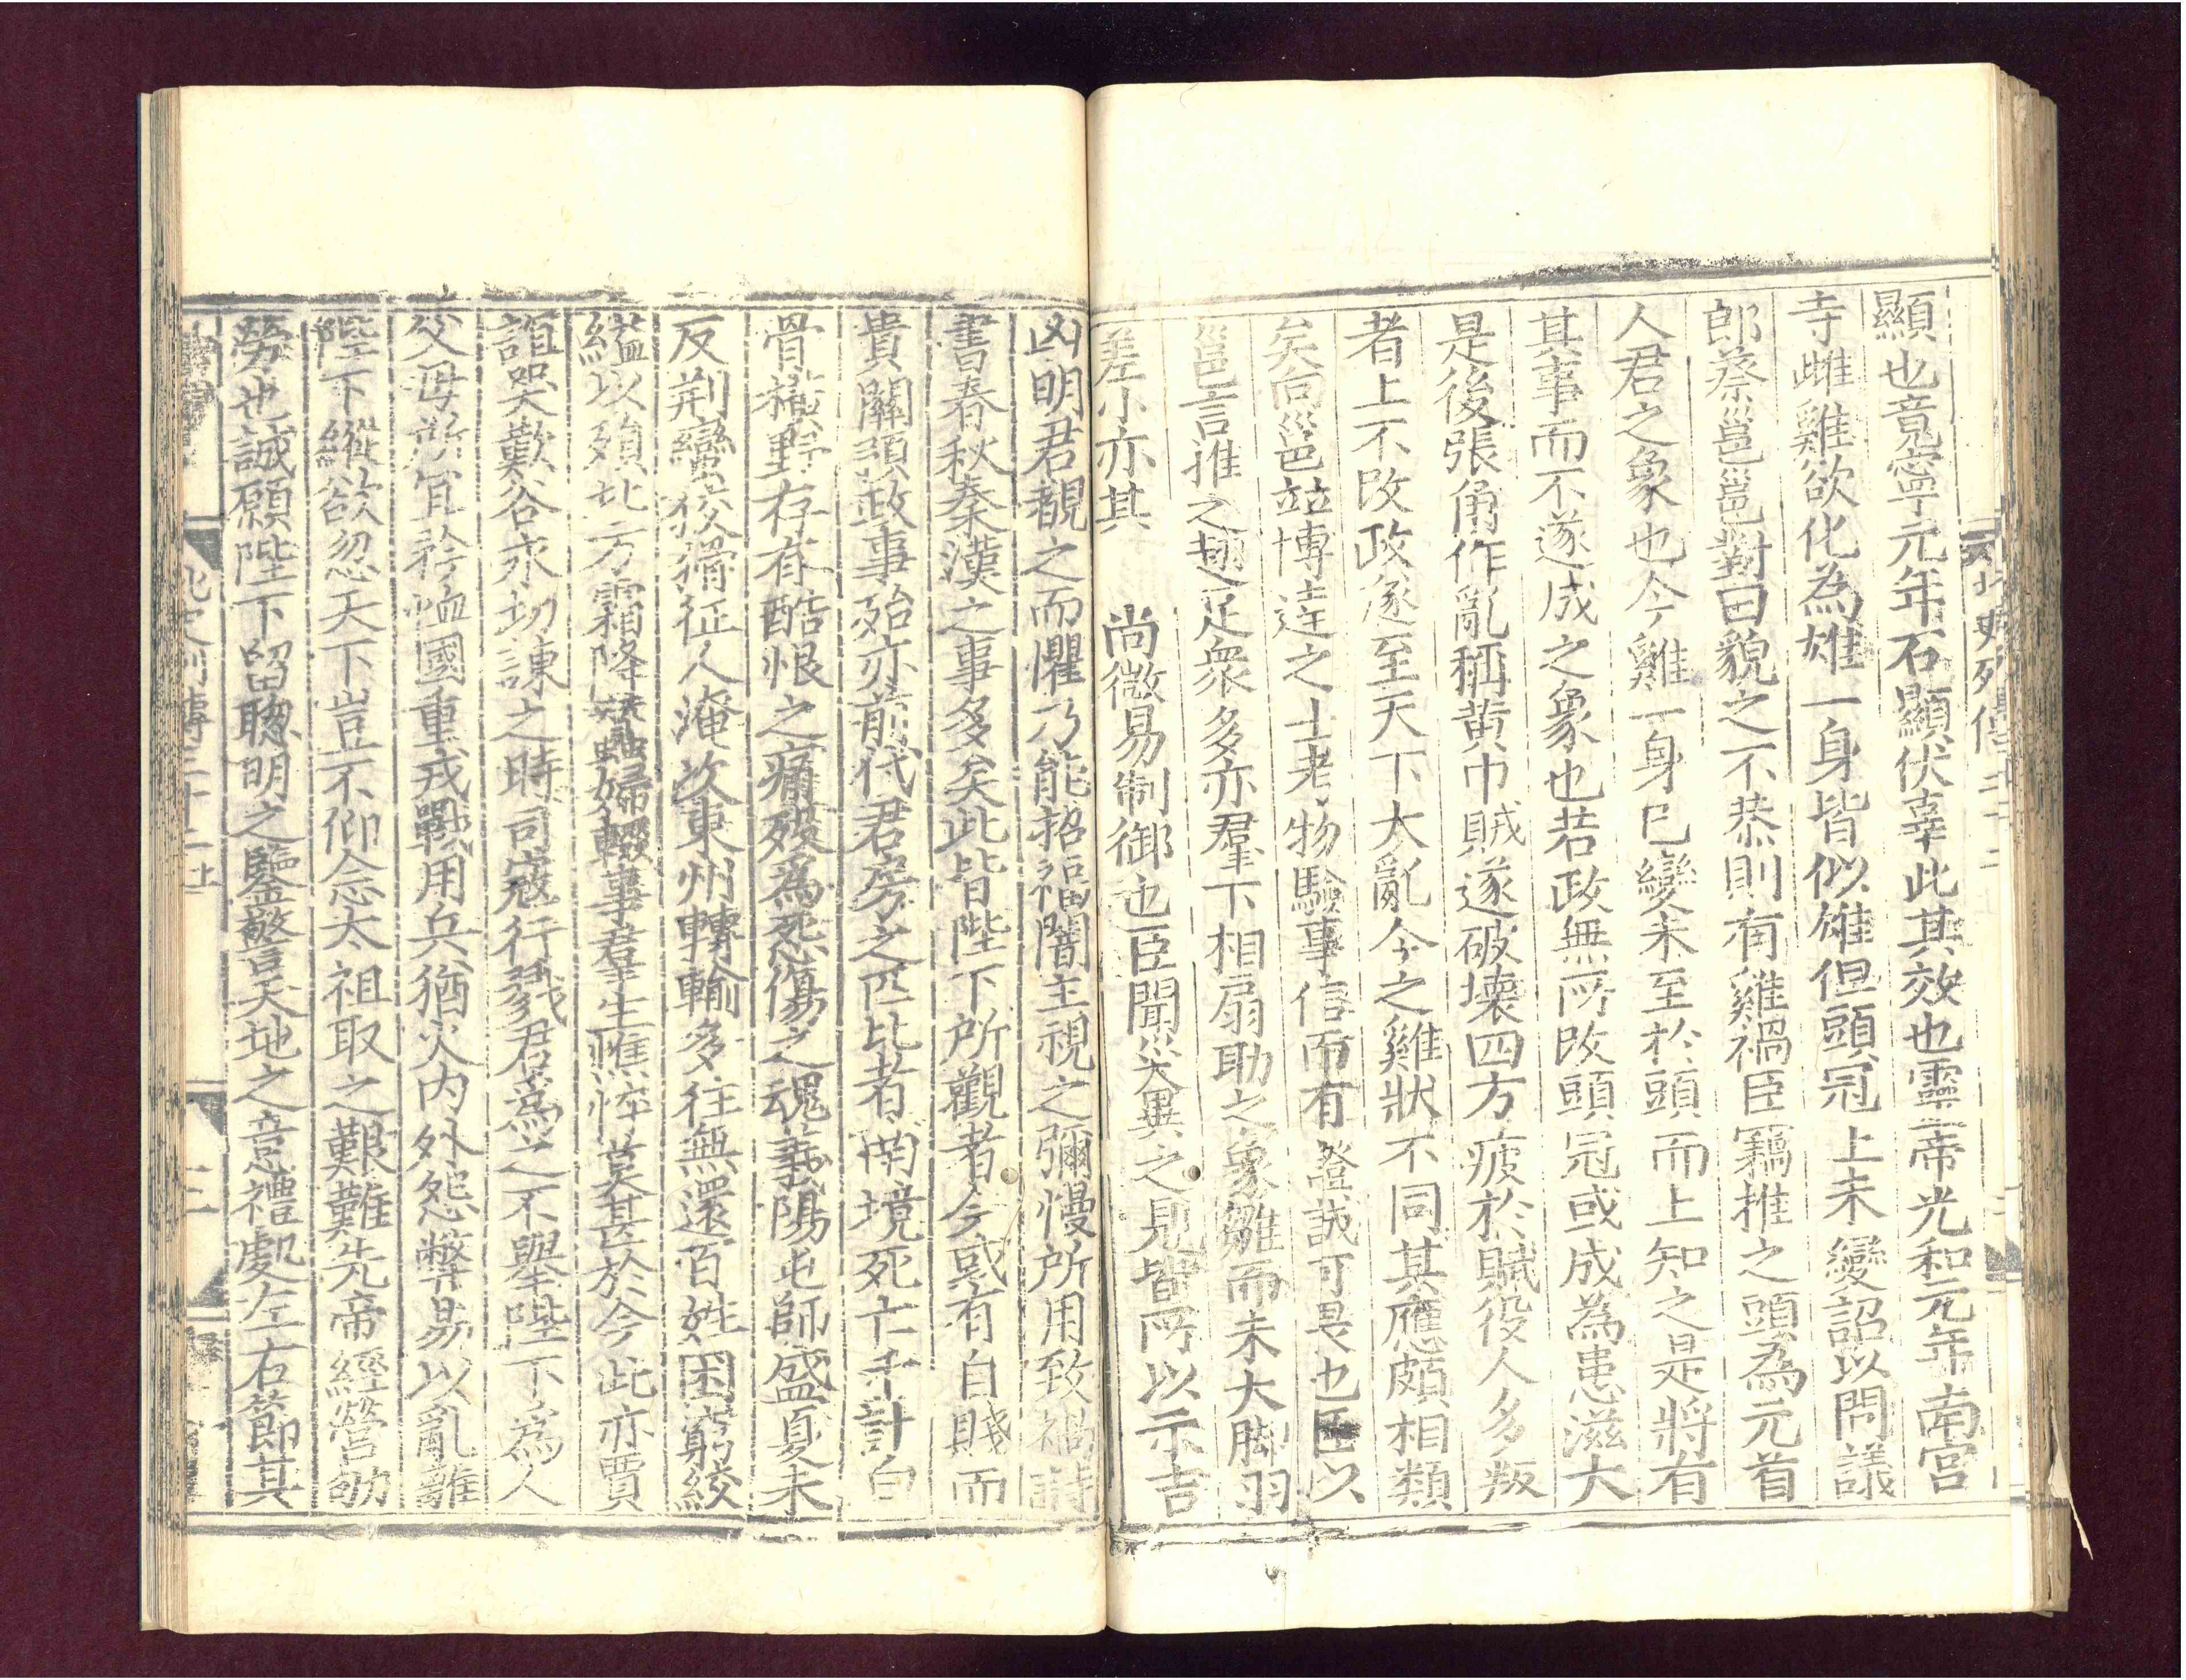 北史列傳三十二
顯也竟寧元年石顯伏辜此其效也靈帝光和元年南宮
寺雌雞欲化為雄一身皆似雄但頭冠上未變詔以問議
郎蔡邕邕對曰貌之不恭則有雞禍臣竊推之頭為元首
人君之象也今雞一身已變未至於頭而上知之是將有
其事而不遂成之象也若政無所改頭冠或成為患滋大
是後張角作亂稱黄巾賊遂破壞四方疲於賦役人多叛
者上不改政遂至天下大亂今之雞狀不同其應頗相類
矣向邕竝博達之士考物驗事信而有證誠可畏也臣以
邕言推之翅足衆多亦羣下相扇助之象雛而未大脚羽
差小亦其 尚微易制御也臣聞災異之見皆所以示吉
凶明君覩之而懼乃能招福闇主視之彌慢所用致禍詩
書春秋秦漢之事多矣此皆陛下所觀者今或有自賤而
貴關預政事殆亦前代君房之匹比者南境死亡千計白
骨橫野存有酷恨之痛殁為怨傷之魂義陽屯師盛夏未
反荆蠻狡猾征人淹次東州轉輸多往無還百姓困窮絞
縊以殞北方霜降蠶婦輟事羣生憔悴莫甚於今此亦賈
誼哭歎谷永切諫之時司寇行戮君為之不舉陛下為人
父母所宜矜恤國重戎戰用兵猶火内外怨弊易以亂離
陛下縱欲忽天下豈不仰念太祖取之艱難先帝經營劬
勞也誠願陛下留聦明之鑒警天地之意禮處左右節其
北史列傳三十二 十二